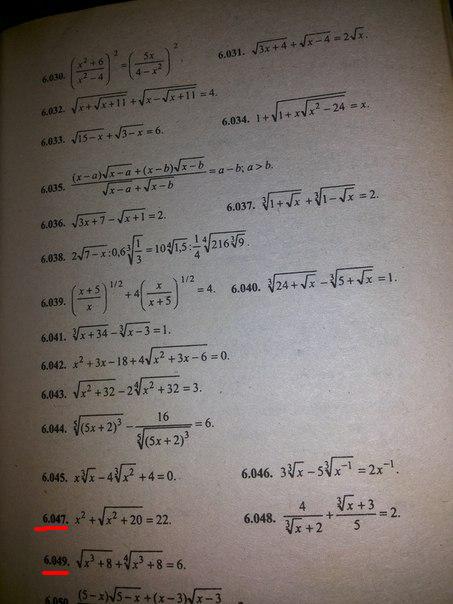 6.030. ((x² + 6)/(x² − 4))² = (5x/(4 − x²))².
6.031. √(3x + 4) + √(x − 4) = 2√x.
6.032. √(x + √(x + 11)) + √(x − √(x + 11)) = 4.
6.033. √(15 − x) + √(3 − x) = 6.
6.034. 1 + √(1 + x√(x² − 24)) = x.
6.035. ((x − a)√(x − a) + (x − b)√(x − b))/(√(x − a) + √(x − b)) = a − b; a > b.
6.036. √(3x + 7) − √(x + 1) = 2.
6.037. ∛(1 + √x) + ∛(1 − √x) = 2.
6.038. 2√(7 − x) : 0,6∛(1/3) = 10∜1,5 : (1/4)∜(216∛9).
6.039. ((x + 5)/x)^(1/2) + 4(x/(x + 5))^(1/2) = 4.
6.040. ∛(24 + √x) − ∛(5 + √x) = 1.
6.041. ∛(x + 34) − ∛(x − 3) = 1.
6.042. x² + 3x − 18 + 4√(x² + 3x − 6) = 0.
6.043. √(x² + 32) − 2∜(x² + 32) = 3.
6.044. ⁵√((5x + 2)³) − 16/⁵√((5x + 2)³) = 6.
6.045. x∛x − 4∛(x²) + 4 = 0.
6.046. 3∛x − 5∛(x⁻¹) = 2x⁻¹.
6.047. x² + √(x² + 20) = 22.
6.048. 4/(∛x + 2) + (∛x + 3)/5 = 2.
6.049. √(x³ + 8) + ∜(x³ + 8) = 6.
6.050. (5 − x)√(5 − x) + (x − 3)√(x − 3)